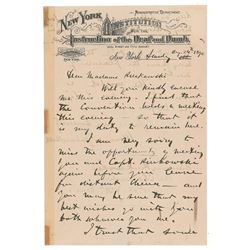 NEW YORK
ADMINISTRATIVE DEPARTMENT
INSTITUTION
FOR THE
Instruction of the Deaf and Dumb,
New York, Sunday Aug. 24th 1890
Dear Madame
Will you kindly excuse
me this evening. I find that
the Convention holds a meeting
this evening so that it
is my duty to remain here.
I am very sorry
miss the opportunity of meeting
you and Capt.
again before you leave
for distant Climes — and
you may be sure that my
best wishes go with you
both wherever you be.
I trust that some